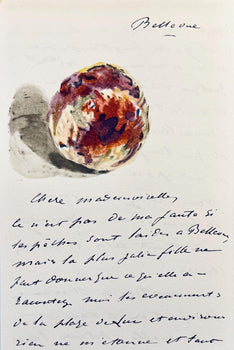 Bellevue
Chère mademoiselle,
ce n'est pas de ma faute si
les pêches sont laides a Bellevue
mais la plus jolie fille ne
peut donner que ce qu'elle a
Racontez moi les evenements
de la plage de Luc et environs
rien ne m'etonne et tout